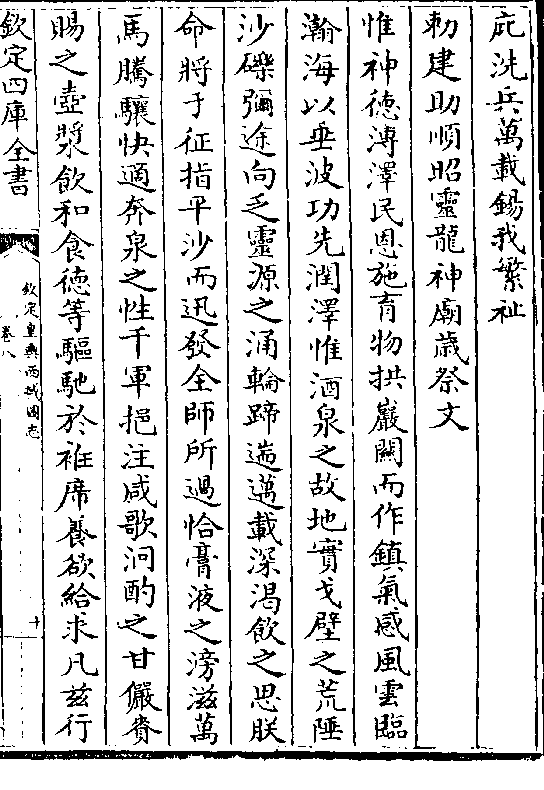 庇洗兵萬載錫我繁祉
勅建助順昭靈龍神廟歲祭文
惟神德溥澤民恩施育物拱巖關而作鎮氣感風雲臨
瀚海以垂波功先潤澤惟酒泉之故地實戈壁之荒陲
沙磧彌途向乏靈源之涌輪蹄遄邁載深渴飲之思朕
命將于征指平沙而迅發全師所過恰膏液之滂滋萬
馬騰驤快適奔泉之性千軍挹注咸歌泂酌之甘儼賚
賜之壺漿飲和食德等驅馳於袵席養欲給求凡兹行
欽定四庫全書
欽定皇輿西域圖志
卷八
十